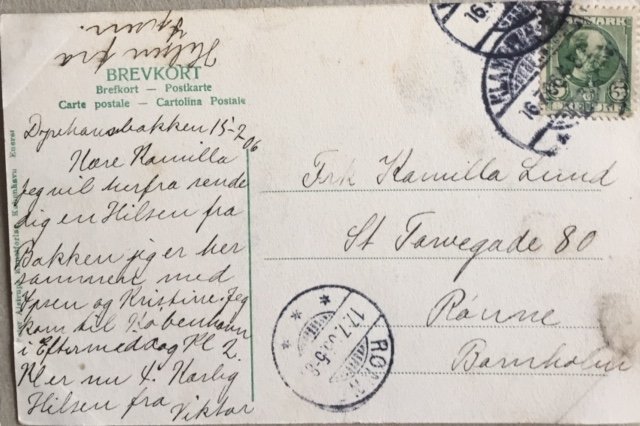 Hilsen fra
Ypsen.
BREVKORT
Brefkort — Postkarte
Carte postale — Cartolina Postale
Dyrehavsbakken 15-7
06
Kære Kamilla
Jeg vil herfra sende
dig en Hilsen fra
Bakken jeg er her
sammen med
Ypsen og Kristine. Jeg
kom til København
i Eftermeddag Kl 2.
Kl er nu 4. Kærlig
Hilsen fra
Viktor
Frk Kamilla Lund
St Torvegade 80
Rønne
Bornholm
DANMARK
5
16.7.06
RØNNE
17.7.06 5-8
København Eneret